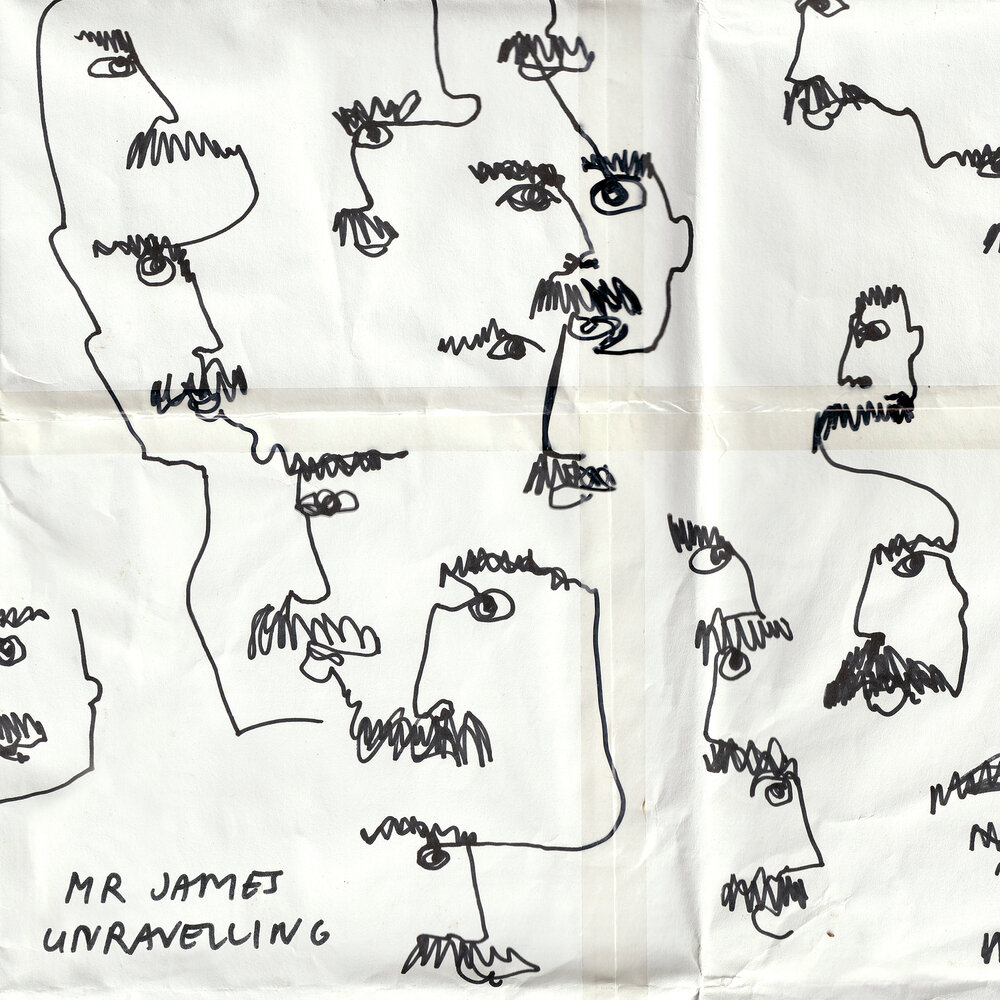 MR JAMES
UNRAVELLING